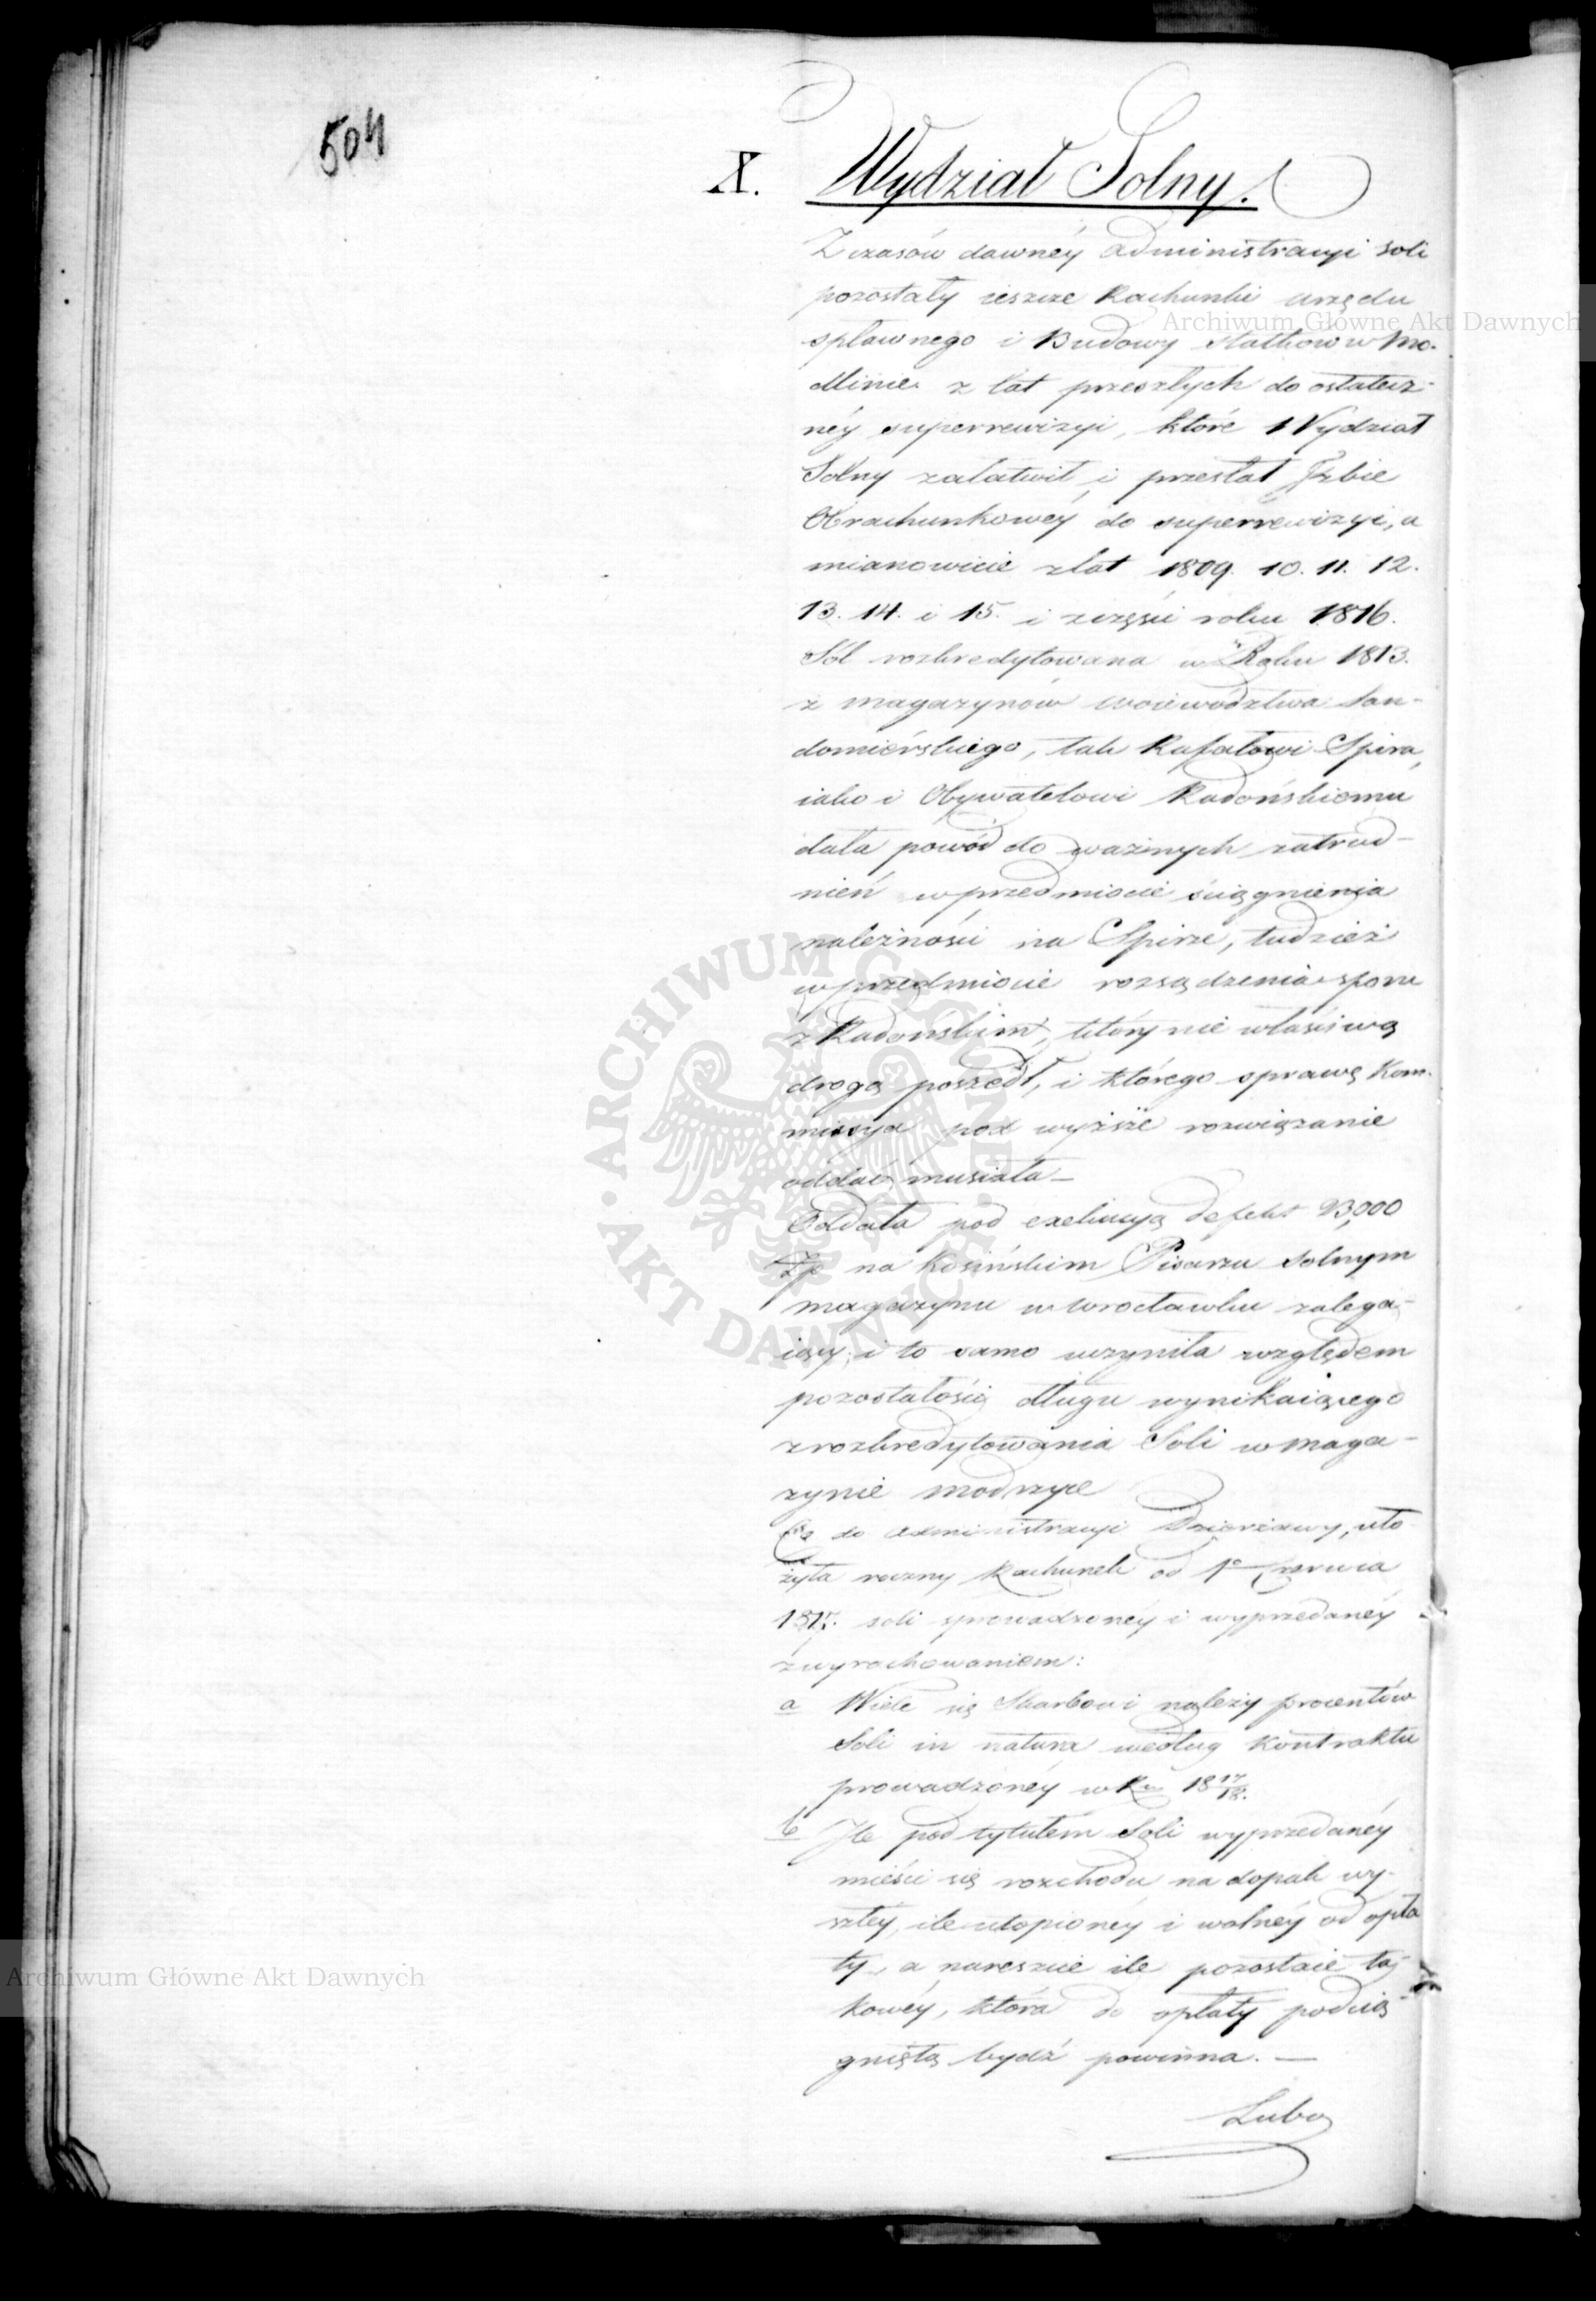 504
X. Wydział Solny.
Z czasów dawnéy administracyi soli
pozostały ieszcze Rachunki urzędu
spławnego i Budowy statków w Mo-
dlinie z lat przeszłych do ostatecz-
néy superrewizyi, które Wydział
Solny załatwił i przesłał Izbie
Obrachunkowéy do superrewizyi, a
mianowicie z lat 1809. 10. 11. 12.
13. 14. i 15. i z części roku 1816.
Sól rozkredytowana w Roku 1813.
z magazynów Woiewództwa San-
domiérskiego, tak Rafałowi Spira,
iako i Obywatelowi Radońskiemu
dała powód do ważnych zatrud-
nień w przedmiocie ściągnienia
należności na Spirze, tudzież
w przedmiocie rozsądzenia sporu
z Radońskim, który nie właściwą
drogą poszedł, i którego sprawę Kom-
missya pod wyższe rozwiązanie
oddać musiała —
Oddała pod exekucyą defekt 23,000
Zp na Kosińskim Pisarzu Solnym
magazynu w Wrocławku zalega-
iący; i to samo uczyniła względem
pozostałości długu wynikaiącego
z rozkredytowania Soli w maga-
zynie Modrzyce
Co do administracyi Dzierżawy, uło-
żyła roczny Rachunek od 1o Czerwca
1817. soli sprowadzonéy i wyprzedanéy
z wyrachowaniem:
a Wiele się Skarbowi należy procentów
Soli in natura według Kontraktu
prowadzonéy w Ru 18 17/18.
b Ile pod tytułem Soli wyprzedanéy
mieści się rozchodu na dopak wy-
szłey, ile utopionéy i wolnéy od opła
ty, a nareszcie ile pozostaie ta-
kowéy, która do opłaty podcią-
gniętą bydź powinna. —
Lubo
Archiwum Główne Akt Dawnych
Archiwum Główne Akt Dawnych
ARCHIWUM GŁÓWNE AKT DAWNYCH